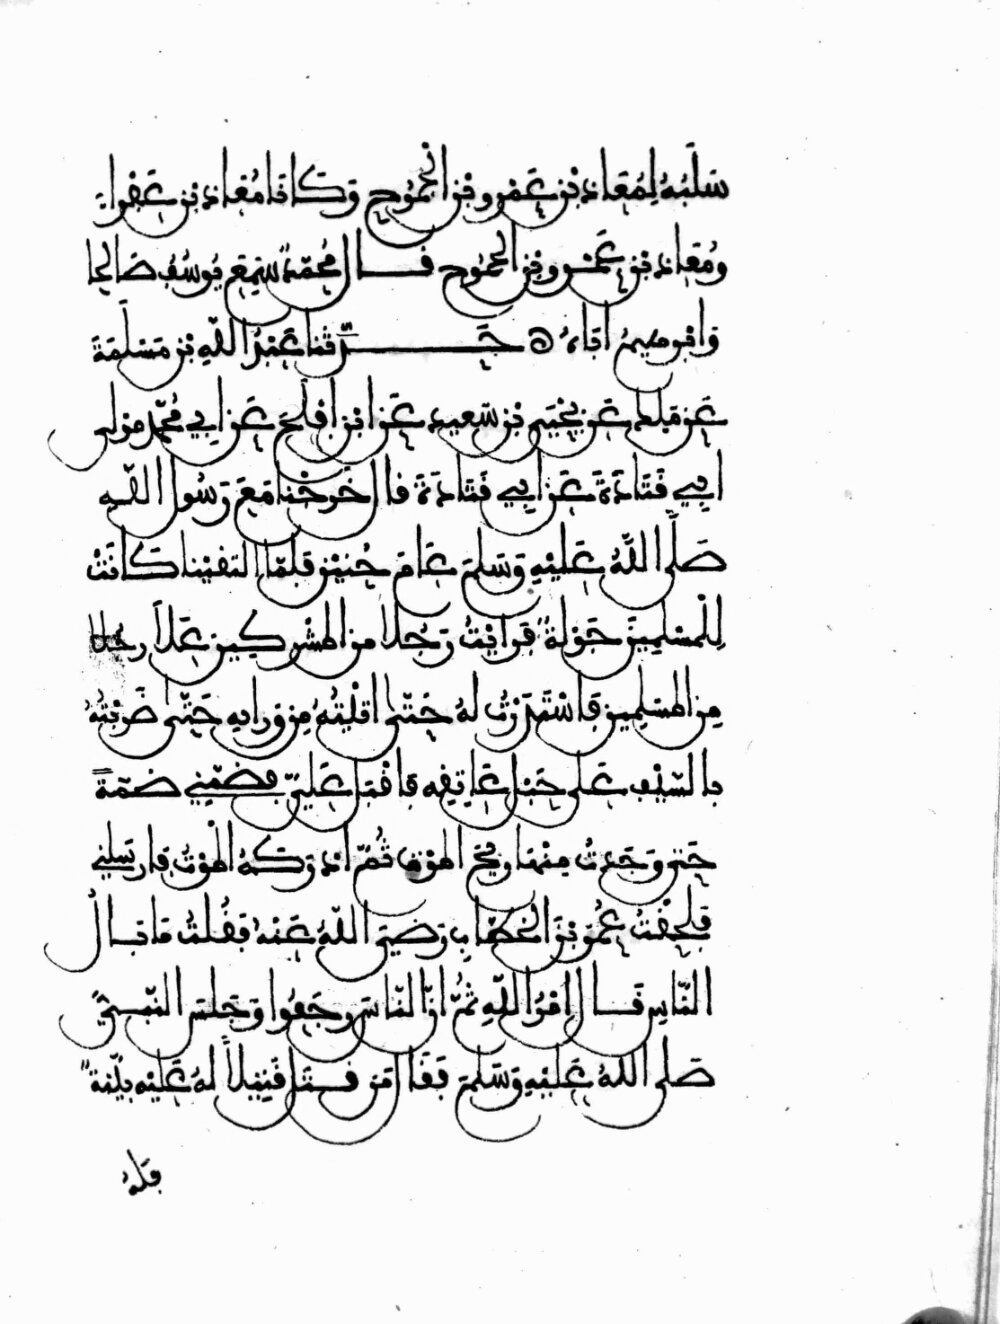 سَلَبُهُ لِمُعَاذِ بْنِ عَمْرِو بْنِ الْجَمُوحِ وَكَانَا مُعَاذَ بْنَ عَفْرَاءَ
وَمُعَاذَ بْنَ عَمْرِو بْنِ الْجَمُوحِ قــال مُحَمَّدٌ سَمِعَ يُوسُفُ صَالِحًا
وَإِبْرَهِيمُ أَبَاهُ ه حَــــدَّثَنَا عَبْدُ اللَّهِ بْنُ مَسْلَمَةَ
عَنْ مَلِكٍ عَنْ يَحْيَى بْنِ سَعِيدٍ عَنِ ابْنِ أَفْلَحَ عَنْ أَبِي مُحَمَّدٍ مَوْلَى
أَبِي قَتَادَةَ عَنْ أَبِي قَتَادَةَ قال خَرَجْنَا مَعَ رَسُولِ اللَّهِ
صَلَّى اللَّهُ عَلَيْهِ وَسَلَّمَ عَامَ حُنَيْنٍ فَلَمَّا الْتَقَيْنَا كَانَتْ
لِلْمُسْلِمِينَ جَوْلَةٌ فَرَأَيْتُ رَجُلًا مِنَ الْمُشْرِكِينَ عَلَا رَجُلًا
مِنَ الْمُسْلِمِينَ فَاسْتَدَرْتُ لَهُ حَتَّى أَتَيْتُهُ مِنْ وَرَايِهِ حَتَّى ضَرَبْتُهُ
بِالسَّيْفِ عَلَى حَبْلِ عَاتِقِهِ فَأَقْبَلَ عَلَيَّ فَضَمَّنِي ضَمَّةً
حَتَّى وَجَدْتُ مِنْهَا رِيحَ الْمَوْتِ ثُمَّ أَدْرَكَهُ الْمَوْتُ فَأَرْسَلَنِي
فَلَحِقْتُ عُمَرَ بْنَ الْخَطَّابِ رَضِيَ اللَّهُ عَنْهُ فَقُلْتُ مَا بَــالُ
النَّاسِ قَــالَ أَمْرُ اللَّهِ ثُمَّ إِنَّ النَّاسَ رَجَعُوا وَجَلَسَ النَّبِــيُّ
صَلَّى اللَّهُ عَلَيْهِ وَسَلَّمَ فَقَالَ مَنْ قَــتَلَ قَتِيلًا لَهُ عَلَيْهِ بَيِّنَةٌ
فَلَهُ